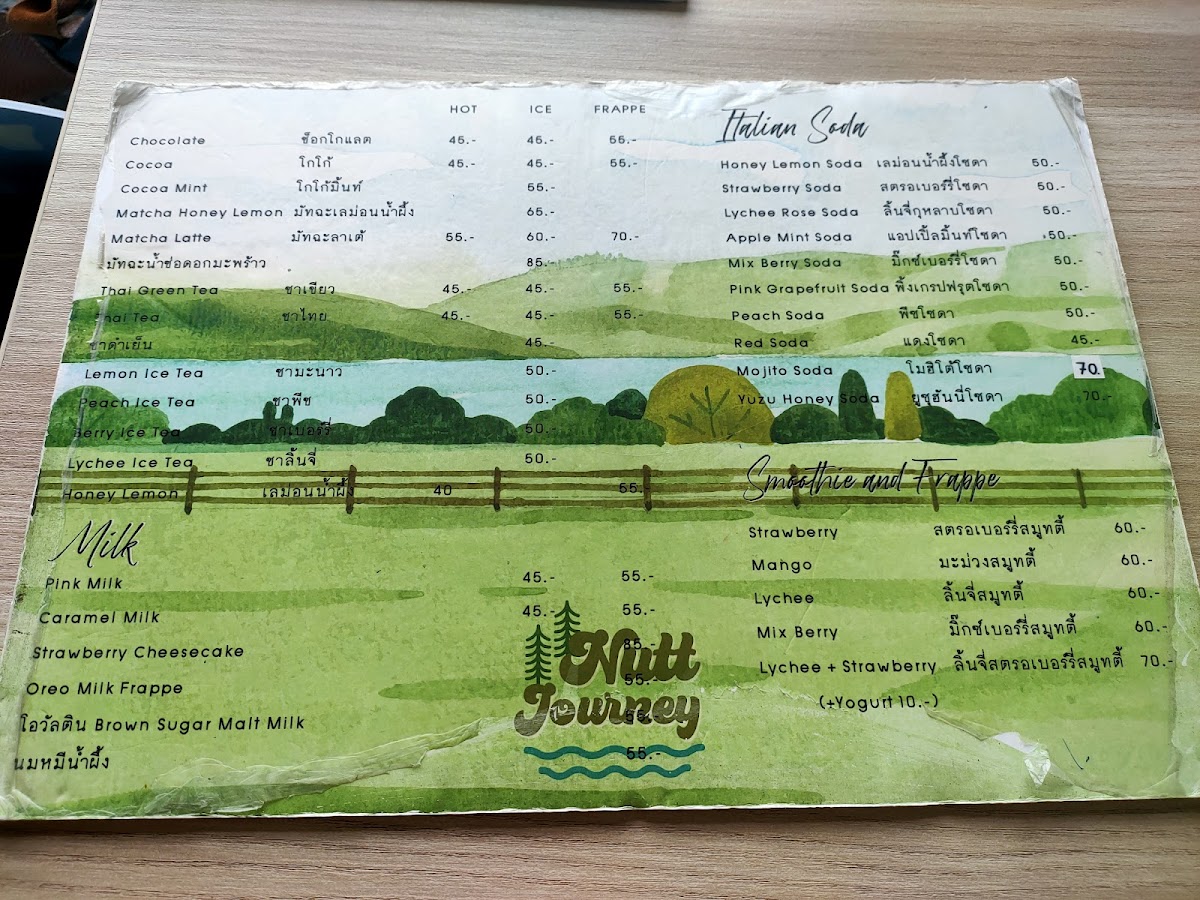 HOT ICE FRAPPE
Chocolate ช็อกโกแลต 45.- 45.- 55.-
Cocoa โกโก้ 45.- 45.- 55.-
Cocoa Mint โกโก้มิ้นท์ 55.-
Matcha Honey Lemon มัทฉะเลม่อนน้ำผึ้ง 65.-
Matcha Latte มัทฉะลาเต้ 55.- 60.- 70.-
มัทฉะน้ำช่อดอกมะพร้าว 85.-
Thai Green Tea ชาเขียว 45.- 45.- 55.-
Thai Tea ชาไทย 45.- 45.- 55.-
ชาดำเย็น 45.-
Lemon Ice Tea ชามะนาว 50.-
Peach Ice Tea ชาพีช 50.-
Berry Ice Tea ชาเบอร์รี่ 50.-
Lychee Ice Tea ชาลิ้นจี่ 50.-
Honey Lemon เลม่อนน้ำผึ้ง 40 55.
Milk
Pink Milk 45.- 55.-
Caramel Milk 45.- 55.-
Strawberry Cheesecake 85.-
Oreo Milk Frappe 55.-
โอวัลติน Brown Sugar Malt Milk
นมหมีน้ำผึ้ง 55.-
Nutt
Journey
Italian Soda
Honey Lemon Soda เลม่อนน้ำผึ้งโซดา 50.-
Strawberry Soda สตรอเบอร์รี่โซดา 50.-
Lychee Rose Soda ลิ้นจี่กุหลาบโซดา 50.-
Apple Mint Soda แอปเปิ้ลมิ้นท์โซดา 50.-
Mix Berry Soda มิ๊กซ์เบอร์รี่โซดา 50.-
Pink Grapefruit Soda พิ้งเกรปฟรุตโซดา 50.-
Peach Soda พีชโซดา 50.-
Red Soda แดงโซดา 45.-
Mojito Soda โมฮิโต้โซดา 70.
Yuzu Honey Soda ยูซุฮันนี่โซดา 70.-
Smoothie and Frappe
Strawberry สตรอเบอร์รี่สมูทตี้ 60.-
Mango มะม่วงสมูทตี้ 60.-
Lychee ลิ้นจี่สมูทตี้ 60.-
Mix Berry มิ๊กซ์เบอร์รี่สมูทตี้ 60.-
Lychee + Strawberry ลิ้นจี่สตรอเบอร์รี่สมูทตี้ 70.-
(+Yogurt 10.-)